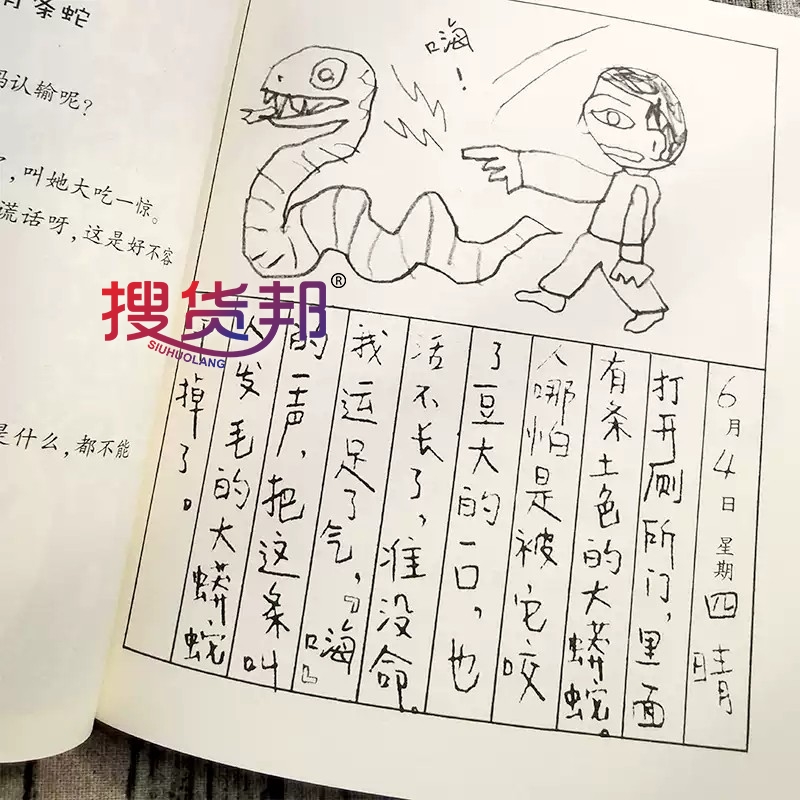 有条蛇
妈认输呢?
了,叫她大吃一惊。
谎话呀,这是好不容
是什么,都不能
嗨!
6月4日 星期四 晴
打开厕所门,里面
有条土色的大蟒蛇。
人哪怕是被它咬
了豆大的一口,也
活不长了,准没命。
我运足了气,『嗨』
的一声,把这条叫
人发毛的大蟒蛇
干掉了。
搜货邦®
SIUHUOLANG